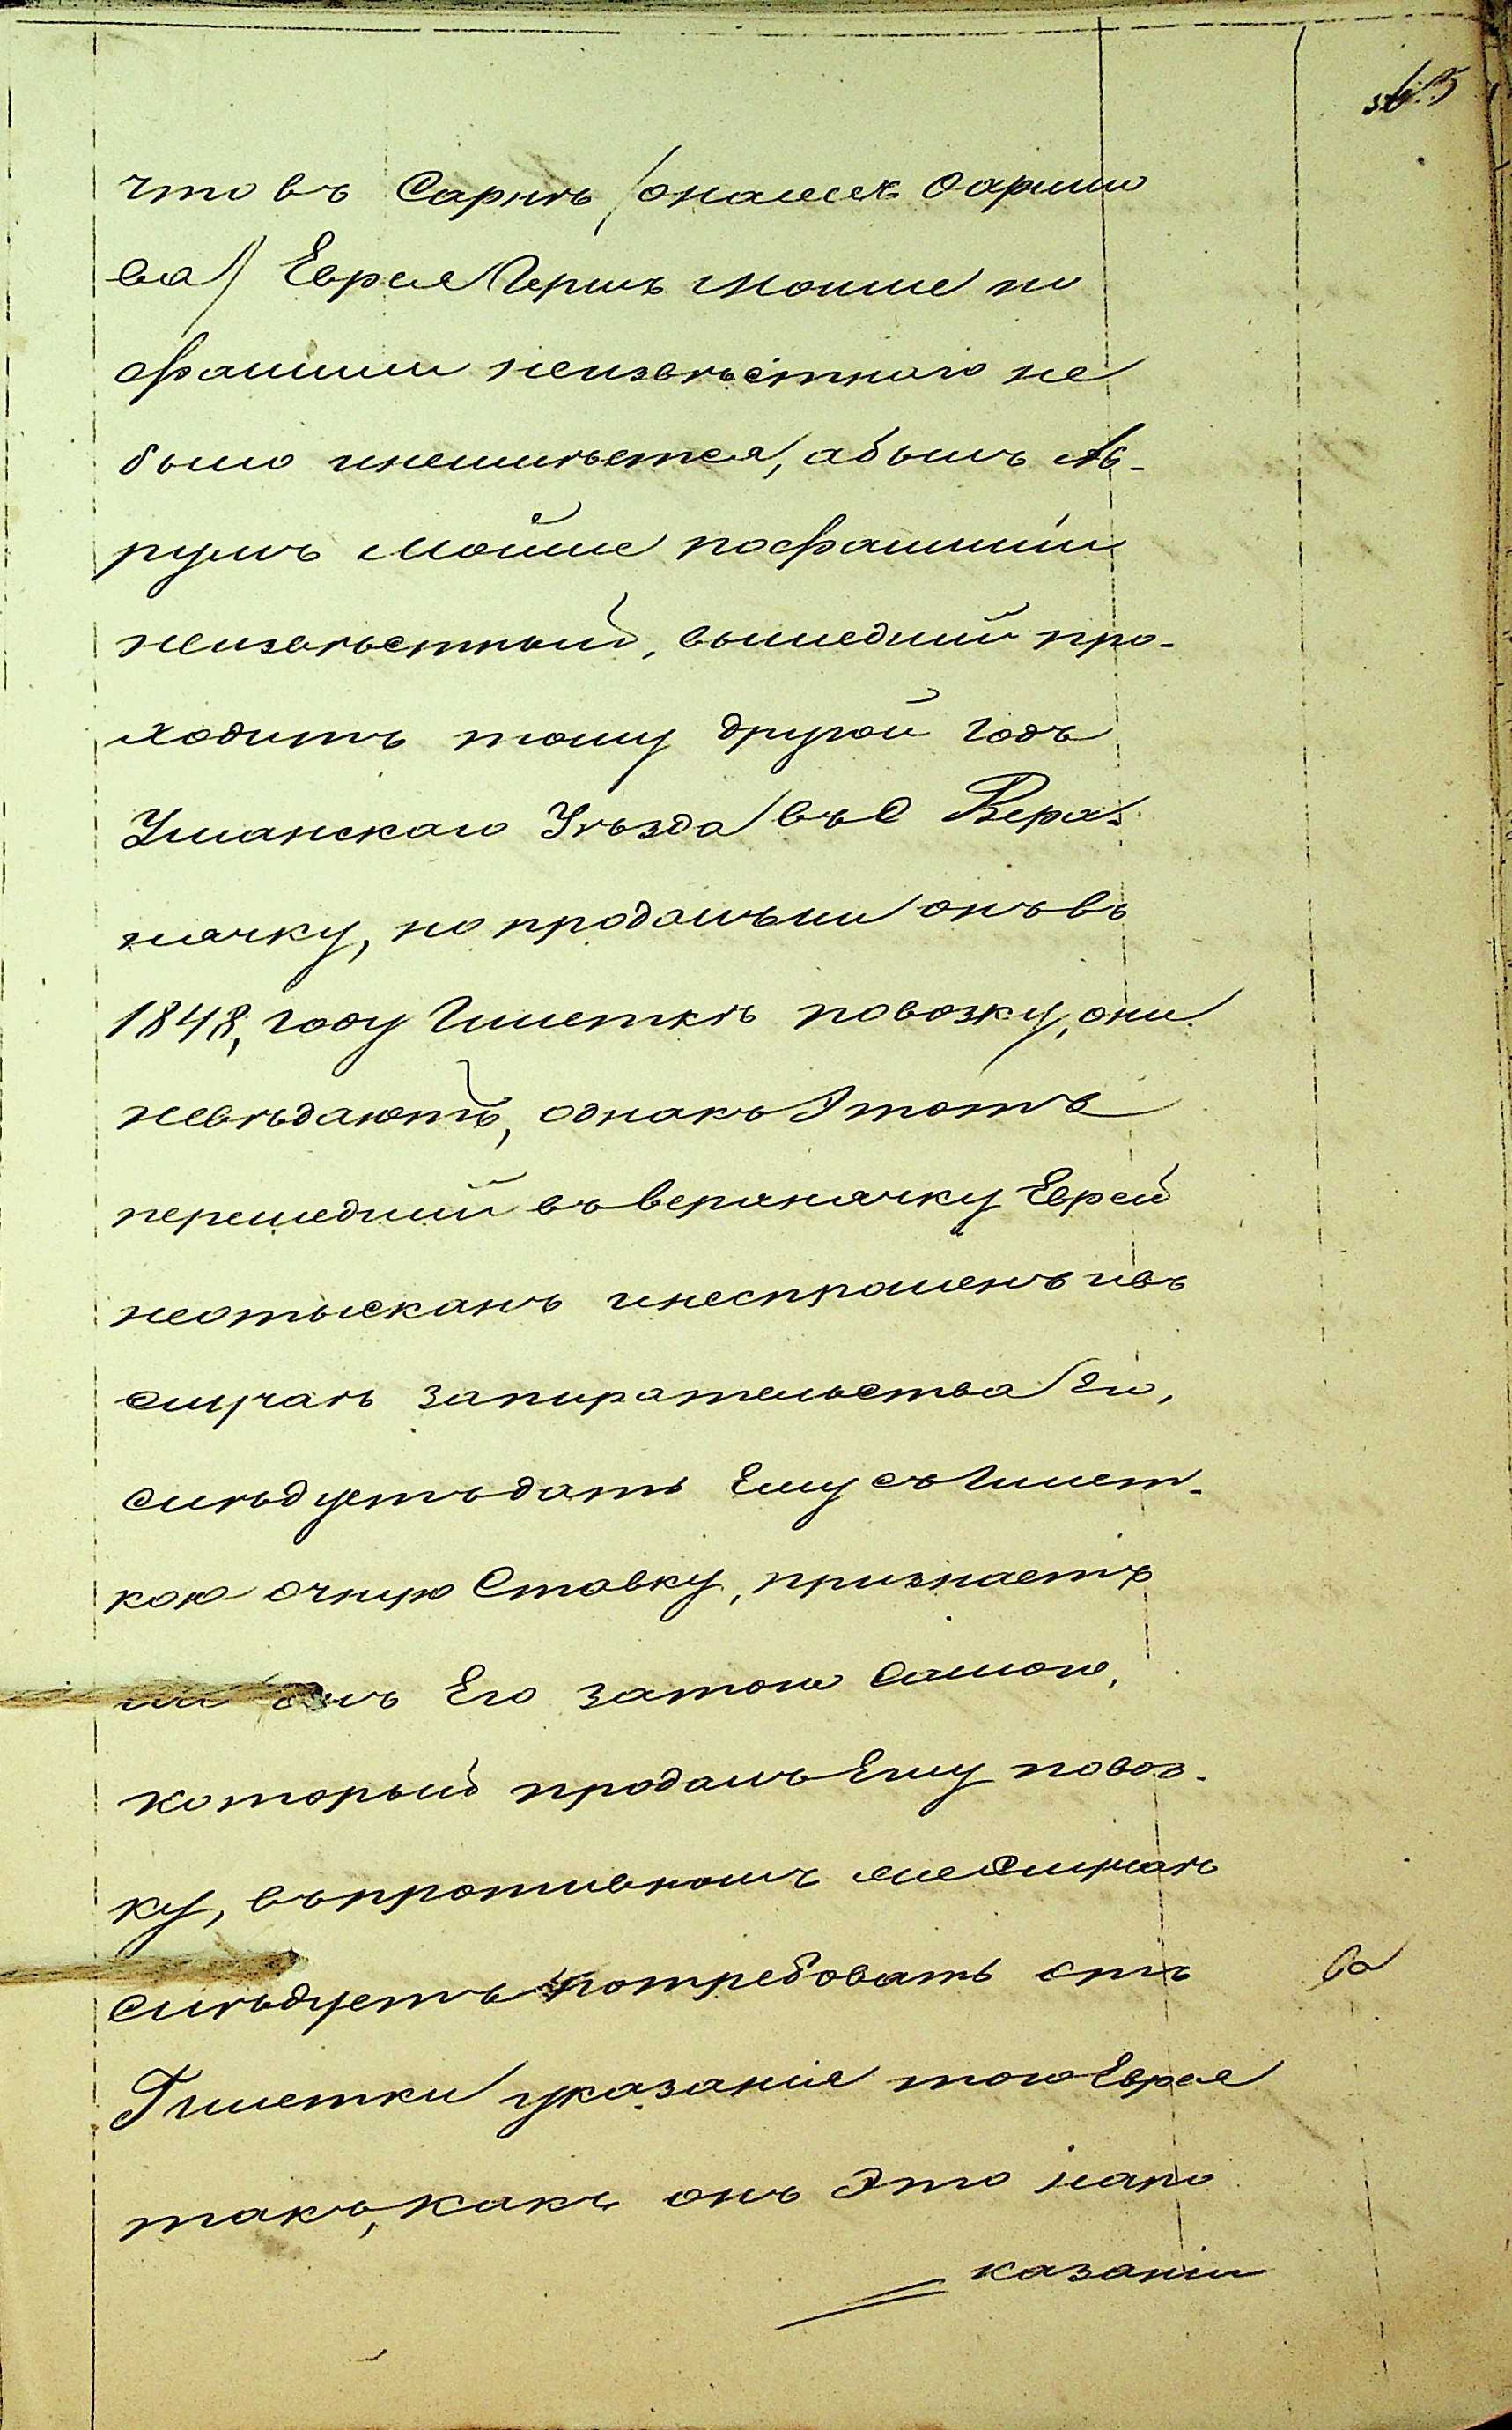 что въ Сарнѣ /онажеж Сарино
ва/ Еврея Гершъ Мошие по
фамиліи неизвѣстного не
было инеимѣется, абылъ Ав-
румъ Мойше пофамиліи
неизвѣстный, вышедшій про-
ходитъ тому другой годъ
Уманскаго Уѣзда въ С Вера-
начку, но продалъли онъ въ
1848, году Гметкѣ повозку, они
невѣдаютъ, однако этотъ
перешедшій въ вераначку Еврей
неотысканъ инеспрошенъ ивъ
случаѣ запирательства Его,
слѣдуетъ дать Ему съ Гмет-
кою очную Ставку, признаетъ
ли онъ Его затого самого,
который продалъ Ему повоз-
ку, въ противномъ же Случаѣ
слѣдуетъ потребовать отъ
Гметки указанія того Еврея
такъ, какъ онъ это напо
казаніи